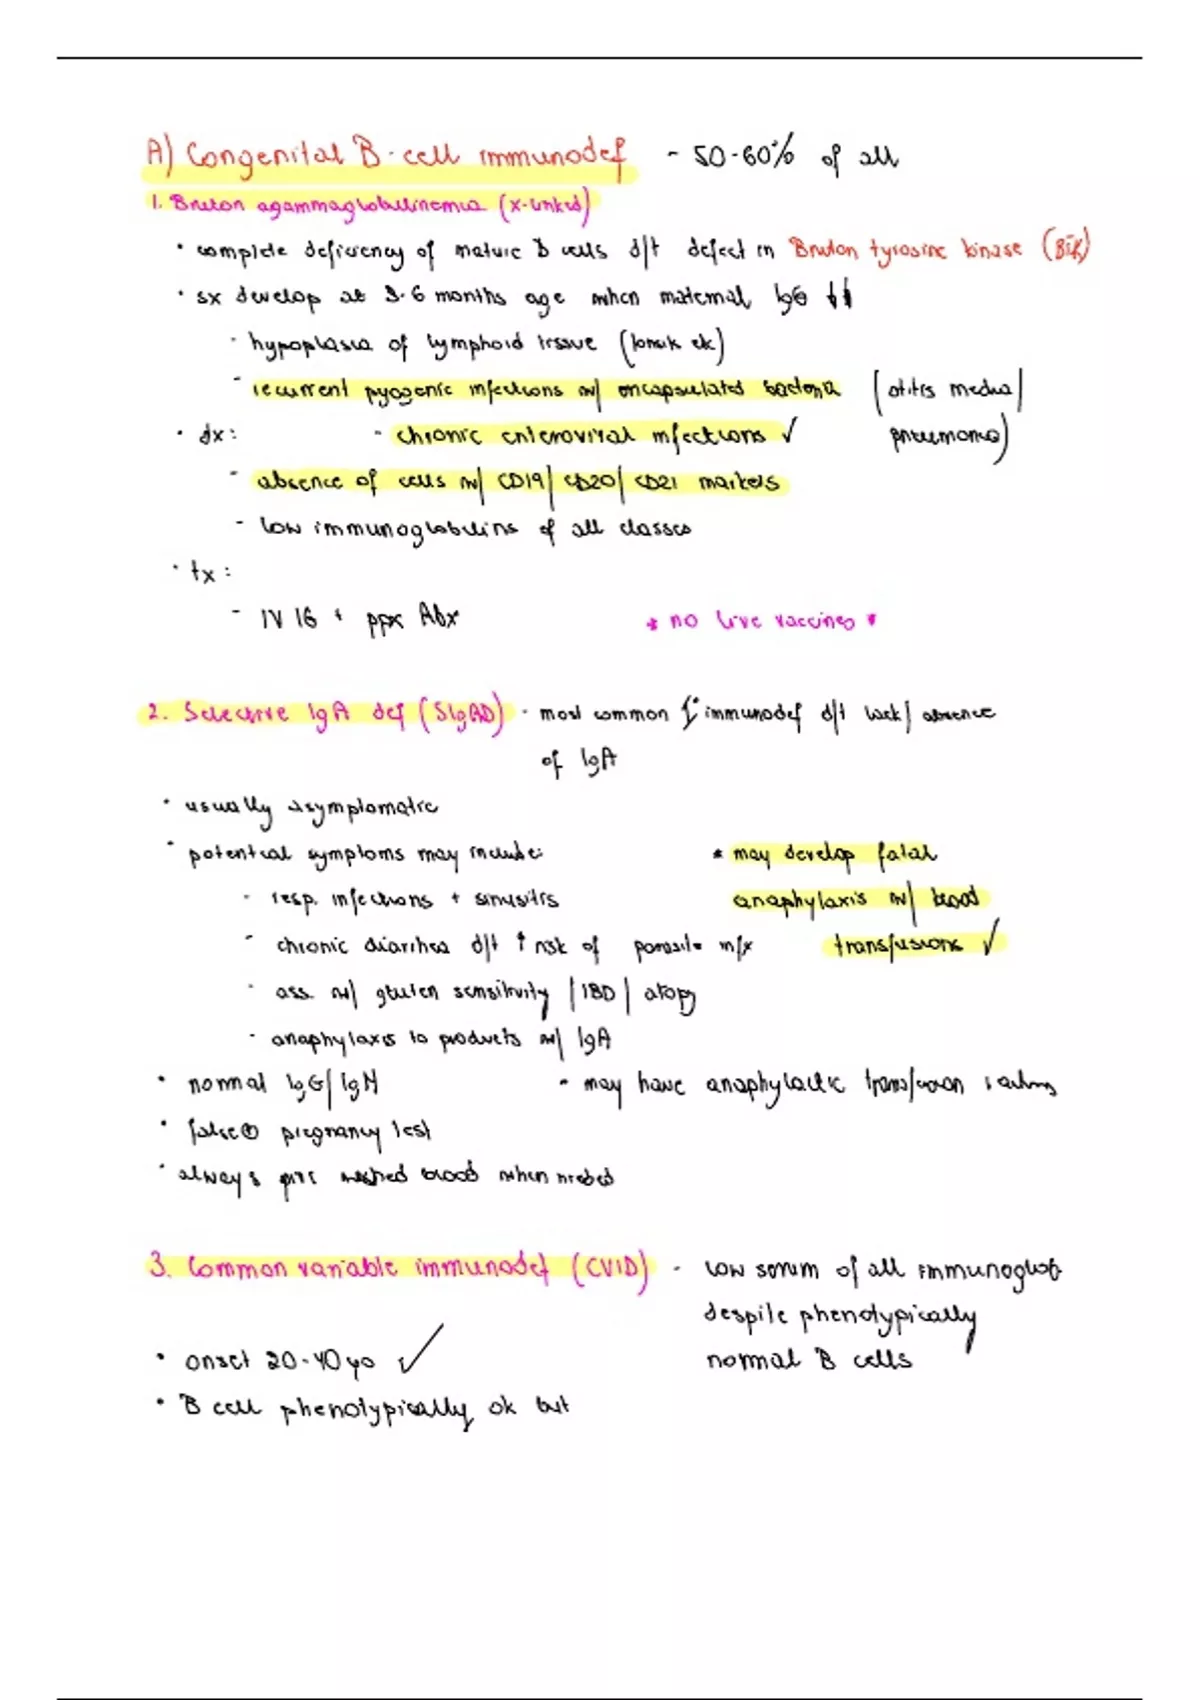 A) Congenital B-cell immunodef - 50-60% of all
1. Bruton agammaglobulinemia (x-linked)
• complete deficiency of mature B cells d/t defect in Bruton tyrosine kinase (BTK)
• sx develop at 3-6 months age when maternal IgG ↓↓
- hypoplasia of lymphoid tissue (tonsils etc)
- recurrent pyogenic infections w/ encapsulated bacteria (otitis media/
• dx: - chronic enteroviral infections ✓ pneumonia)
- absence of cells w/ CD19/CD20/CD21 markers
- low immunoglobulins of all classes
• tx:
- IV IG + ppx Abx * no live vaccines *
2. Selective IgA def (SIgAD) - most common 1° immunodef d/t lack/absence
of IgA
• usually asymptomatic
• potential symptoms may include: * may develop fatal
- resp. infections + sinusitis anaphylaxis w/ blood
- chronic diarrhea d/t ↑ risk of parasite infx transfusions ✓
- ass. w/ gluten sensitivity/IBD/atopy
- anaphylaxis to products w/ IgA
• normal IgG/IgM - may have anaphylactic transfusion
• false ⊕ pregnancy test
• always give washed blood when needed
3. Common variable immunodef (CVID) - low serum of all immunoglob
despite phenotypically
• onset 20-40yo ✓ normal B cells
• B cell phenotypically ok but